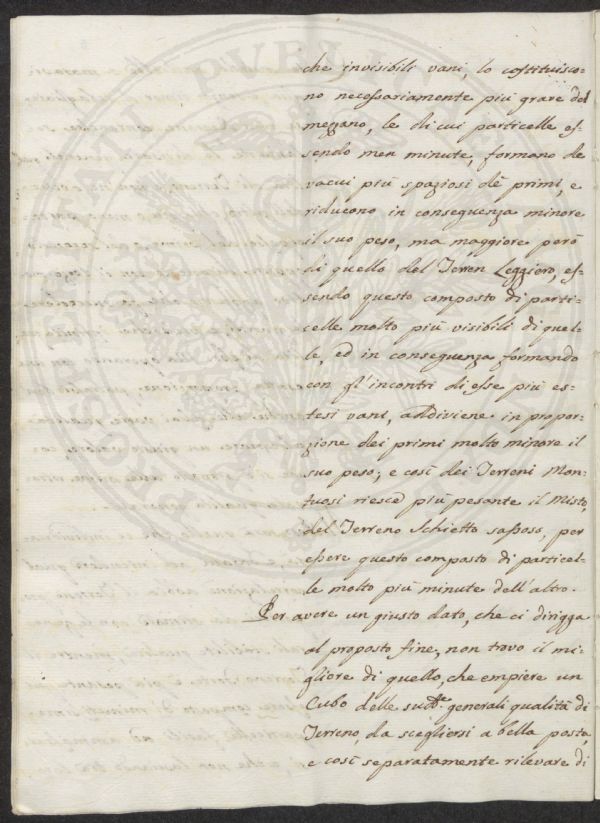 che invisibili vani, lo costituisco=
no necessariamente più grave del
mezzano, le di cui particelle es=
sendo men minute, formano de
vacui più spaziosi dè primi, e
riducono in conseguenza minore
il suo peso, ma maggiore però
di quello del Terren Leggiero, es=
sendo questo composto di parti=
celle molto più visibili di quel=
le, ed in conseguenza formando
con gl'incontri di esse più es=
tesi vani, addiviene in propor=
zione dei primi molto minore il
suo peso; e così dei Terreni Mon=
tuosi riesce più pesante il Misto,
del Terreno Schietto sassoso, per
essere questo composto di particel=
le molto più minute dell'altro.
Per avere un giusto dato, che ci dirigga
al proposto fine, non trovo il mi=
gliore di quello, che empiere un
Cubo delle sudte. generali qualità di
Terreno, da scegliersi a bella posta,
e così separatamente rilevare di
PROSPERITATI PUBLICAE